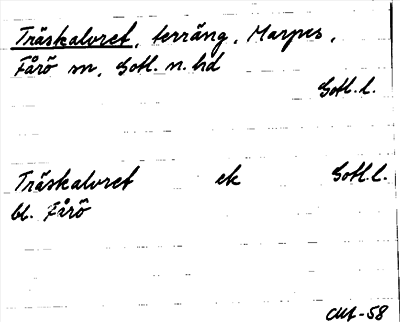 Träskalvret, terräng, Marpes,
Fårö sn, Gotl. n. hd
Gotl. l.
Träskalvret ek Gotl. l.
bl. Fårö
-58